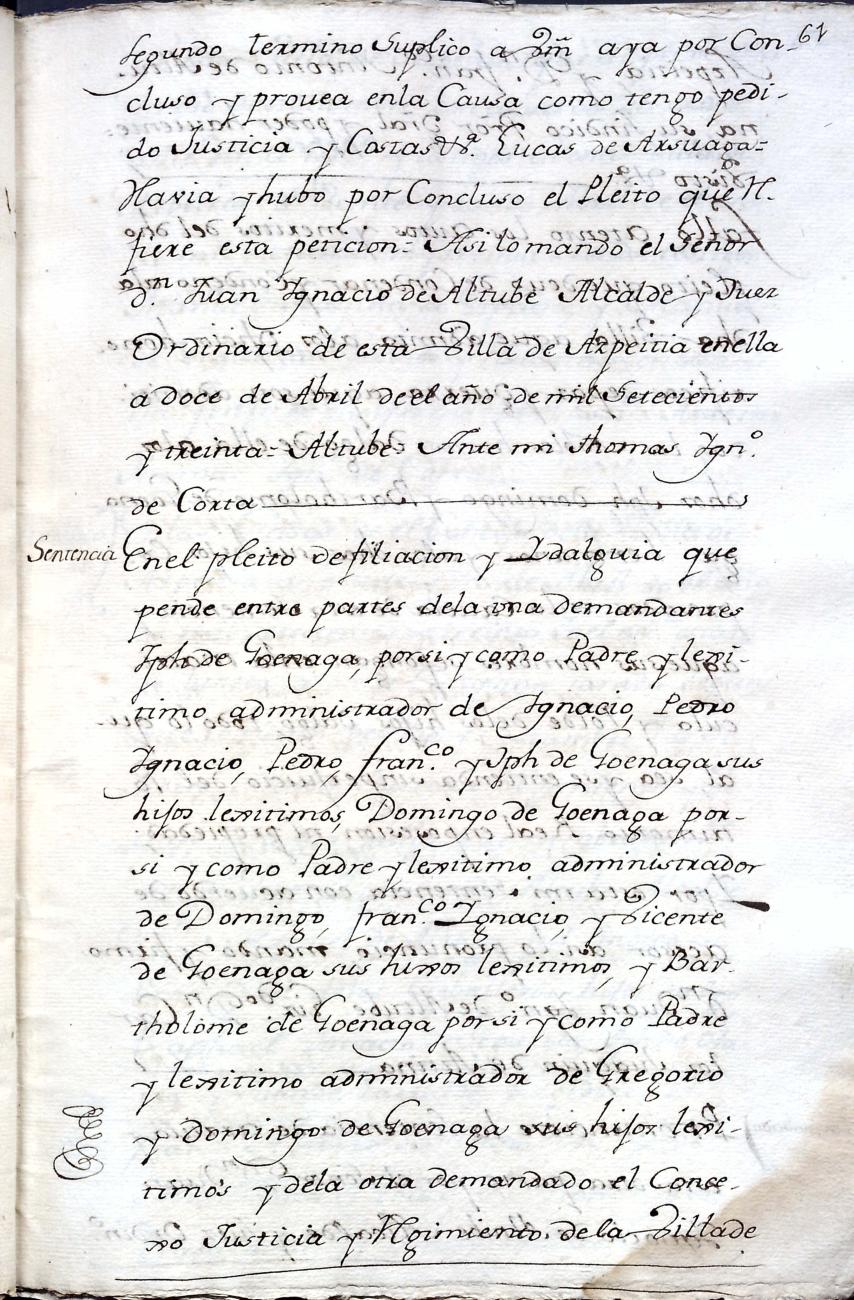 61
segundo termino Suplico a Vm̃ aya por Con-
cluso y prouea enla Causa como tengo pedi-
do Justicia y Costas &ª. Lucas de Arsuaga=
Havia y hubo por Concluso el Pleito que R.
fiere esta peticion= Asi lo mando el Señor
d.ⁿ Juan Ignacio de Altube Alcalde y Juez
Ordinario de esta Villa de Azpeitia enella
a doce de Abril de el año de mil Setecientos
y treinta= Altube= Ante mi thomas Ign.º
de Corta
Sentencia Enel pleito de filiacion y Idalguia que
pende entre partes dela vna demandantes
Jph de Goenaga, por si y como Padre y lexi-
timo administrador de Ignacio, Pedro
Ignacio, Pedro, fran.co y Jph de Goenaga sus
hijos lexitimos, Domingo de Goenaga por-
si y como Padre y lexitimo administrador
de Domingo, fran.co Ignacio, y Vicente
de Goenaga sus hixos lexitimos, y Bar-
tholome de Goenaga por si y como Padre
y lexitimo administrador de Gregorio
y Domingo de Goenaga sus hijos lexi-
timos y dela otra demandado el Conce-
xo Justicia y Rgimiento de la Villa de